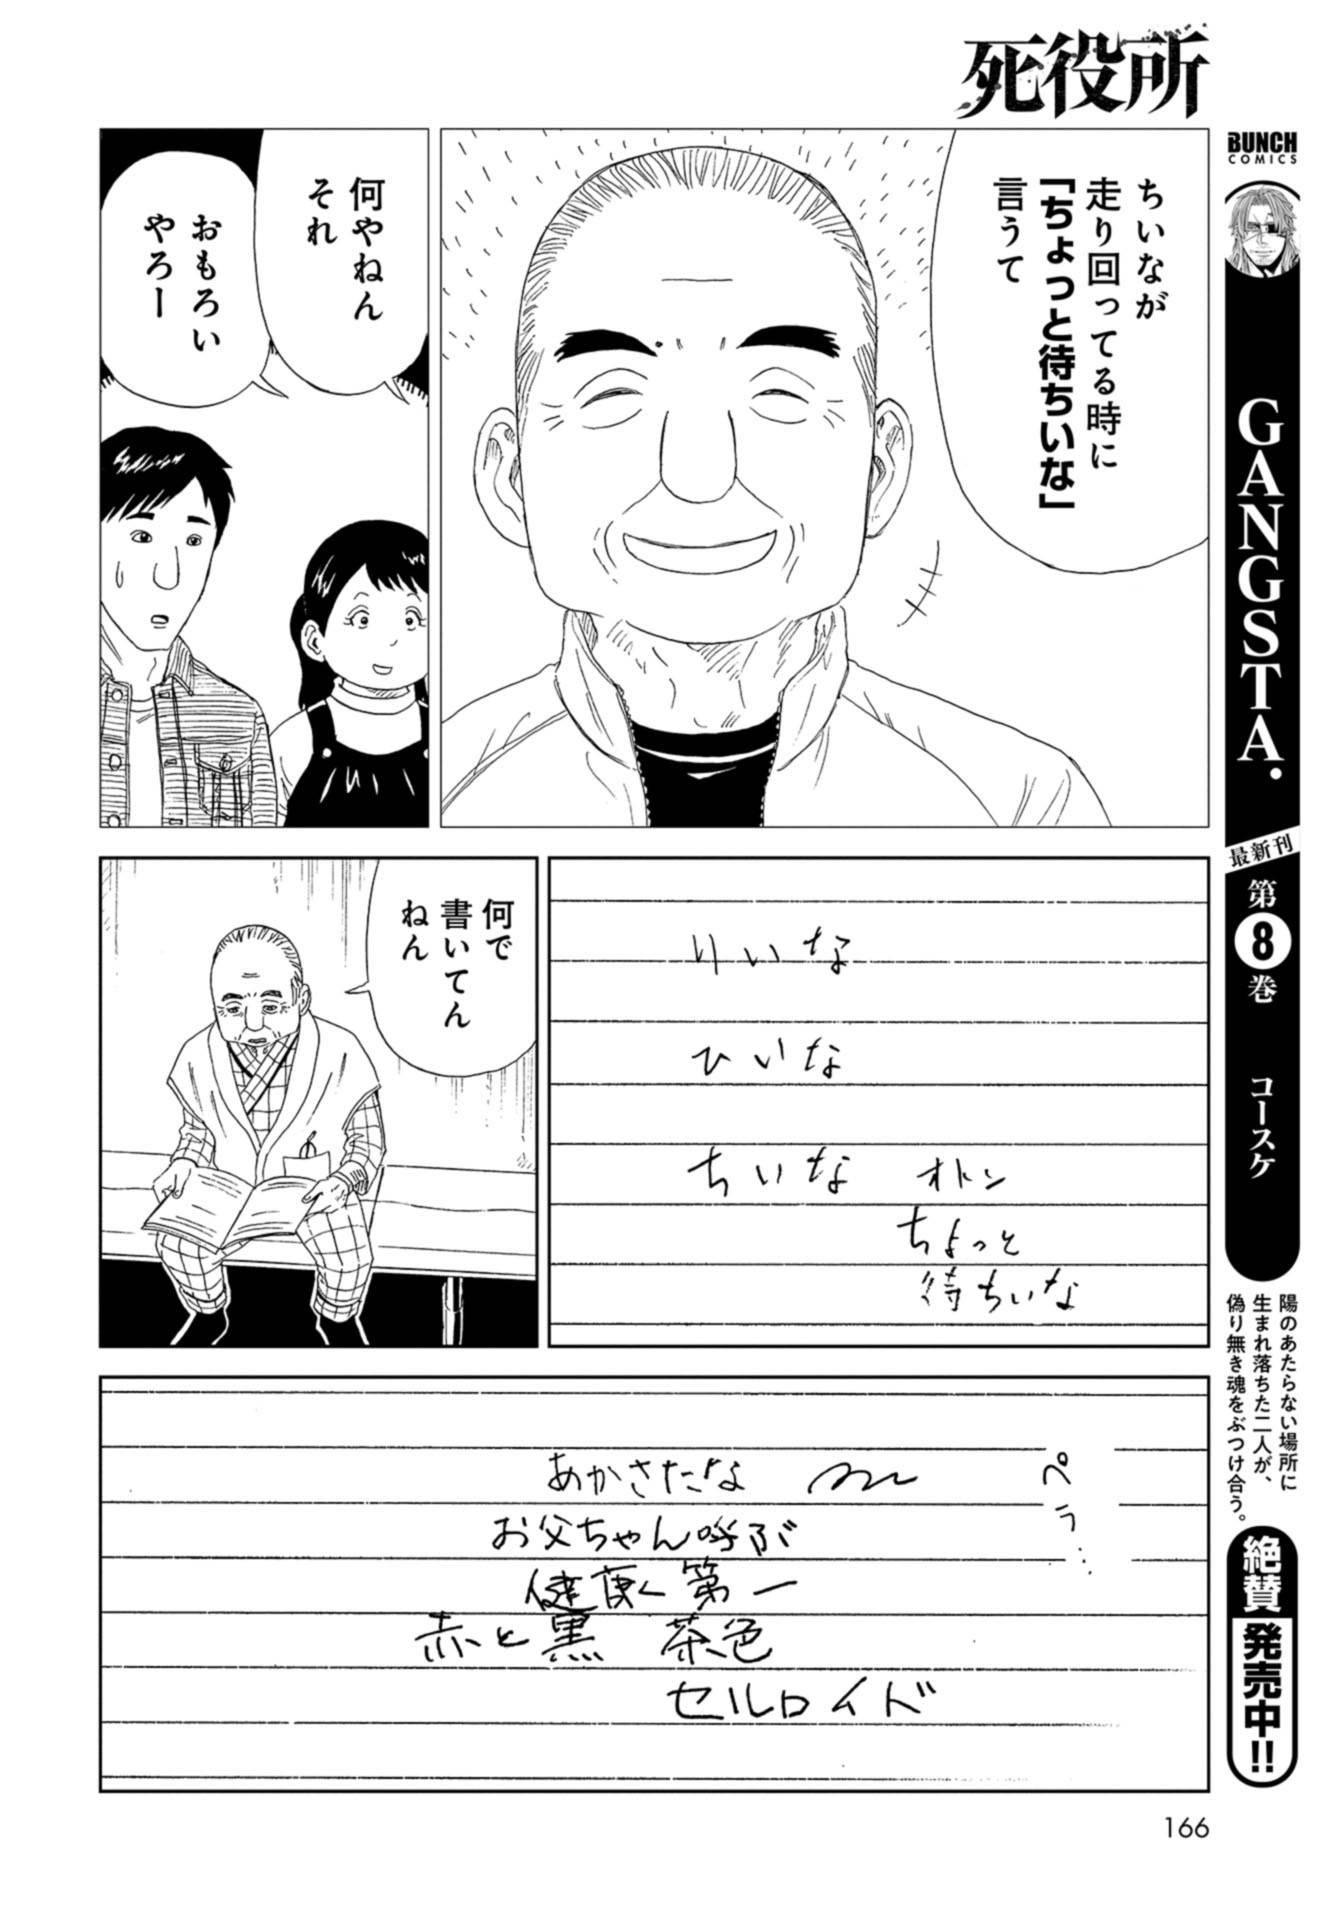 死役所
ちいなが
走り回ってる時に
「ちょっと待ちいな」
言うて
何やねん
それ
おもろい
やろー
りいな
ひいな
ちいな オトン
ちょっと
待ちいな
何で
書いてん
ねん
あかさたな
ペラ…
お父ちゃん呼ぶ
健康第一
赤と黒 茶色
セルロイド
BUNCH
COMICS
GANGSTA.
最新刊
第8巻
コースケ
陽のあたらない場所に
生まれ落ちた二人が、
偽り無き魂をぶつけ合う。
絶賛
発売中!!
166